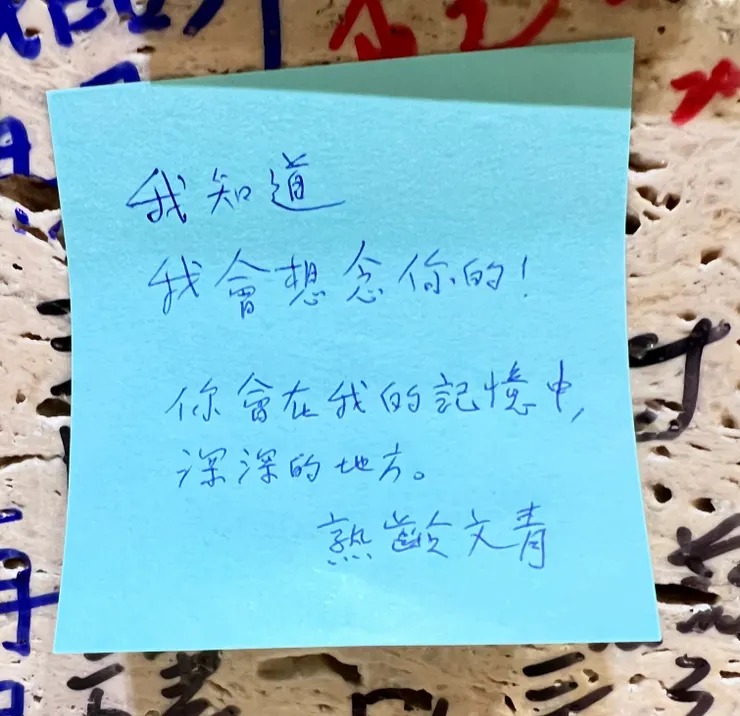 我知道
我會想念你的!
你會在我的記憶中,
深深的地方。
熟齡文青